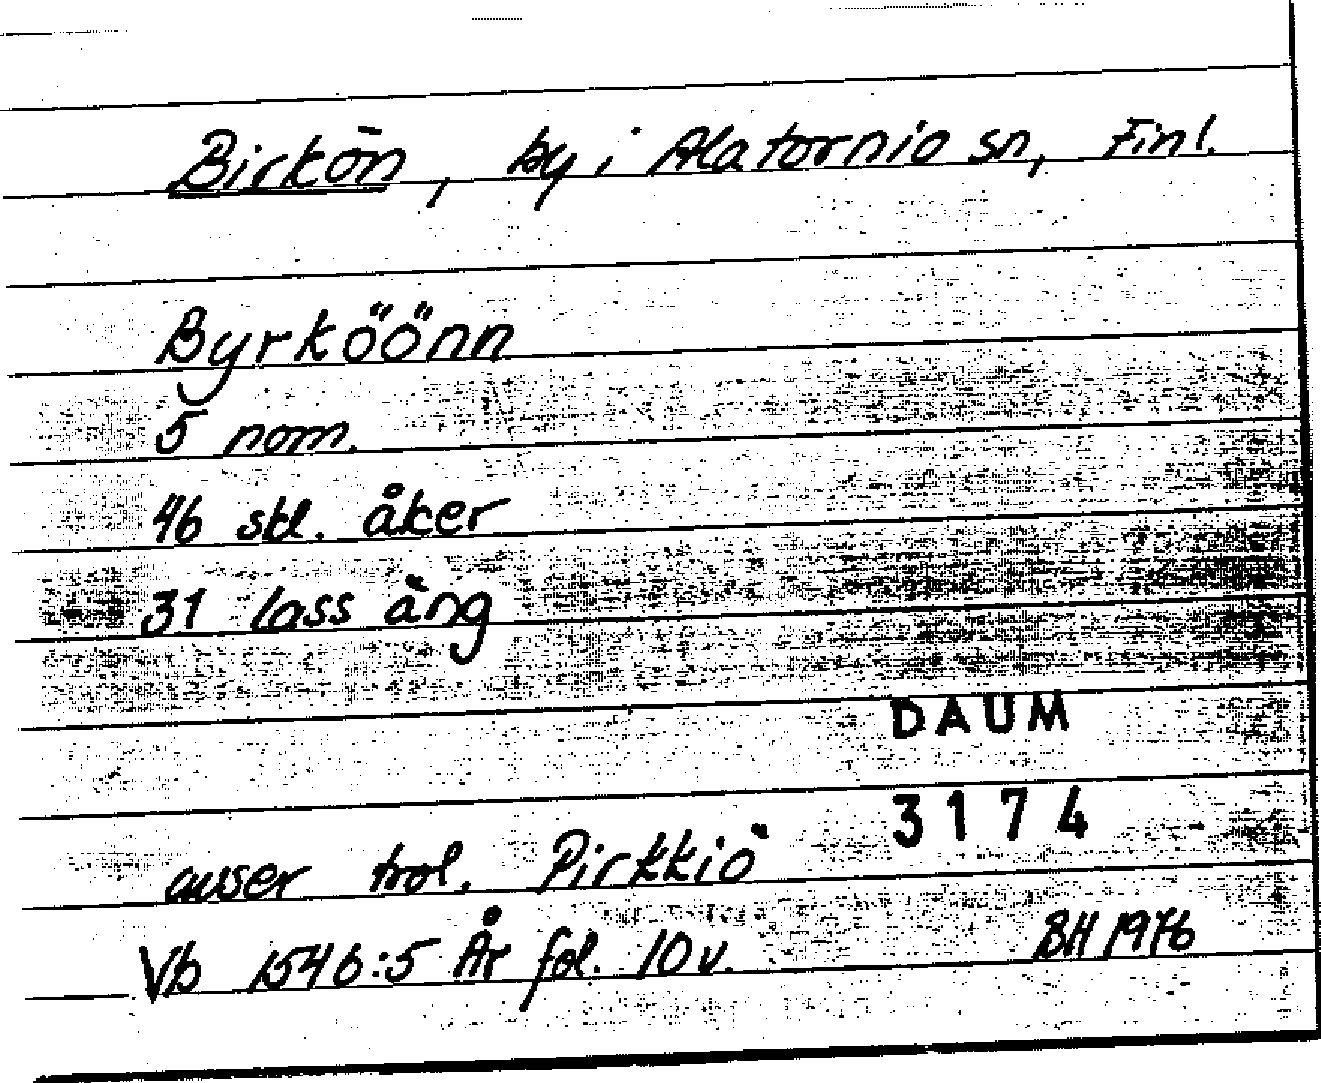 Birkön, by i Alatornio sn, Finl.
Byrköönn
5 nom.
46 skl. åker
31 lass äng
DAUM
3174
avser trol. Pirkkiö
Vb 1546:5 År fol. 10 v. BH 1976